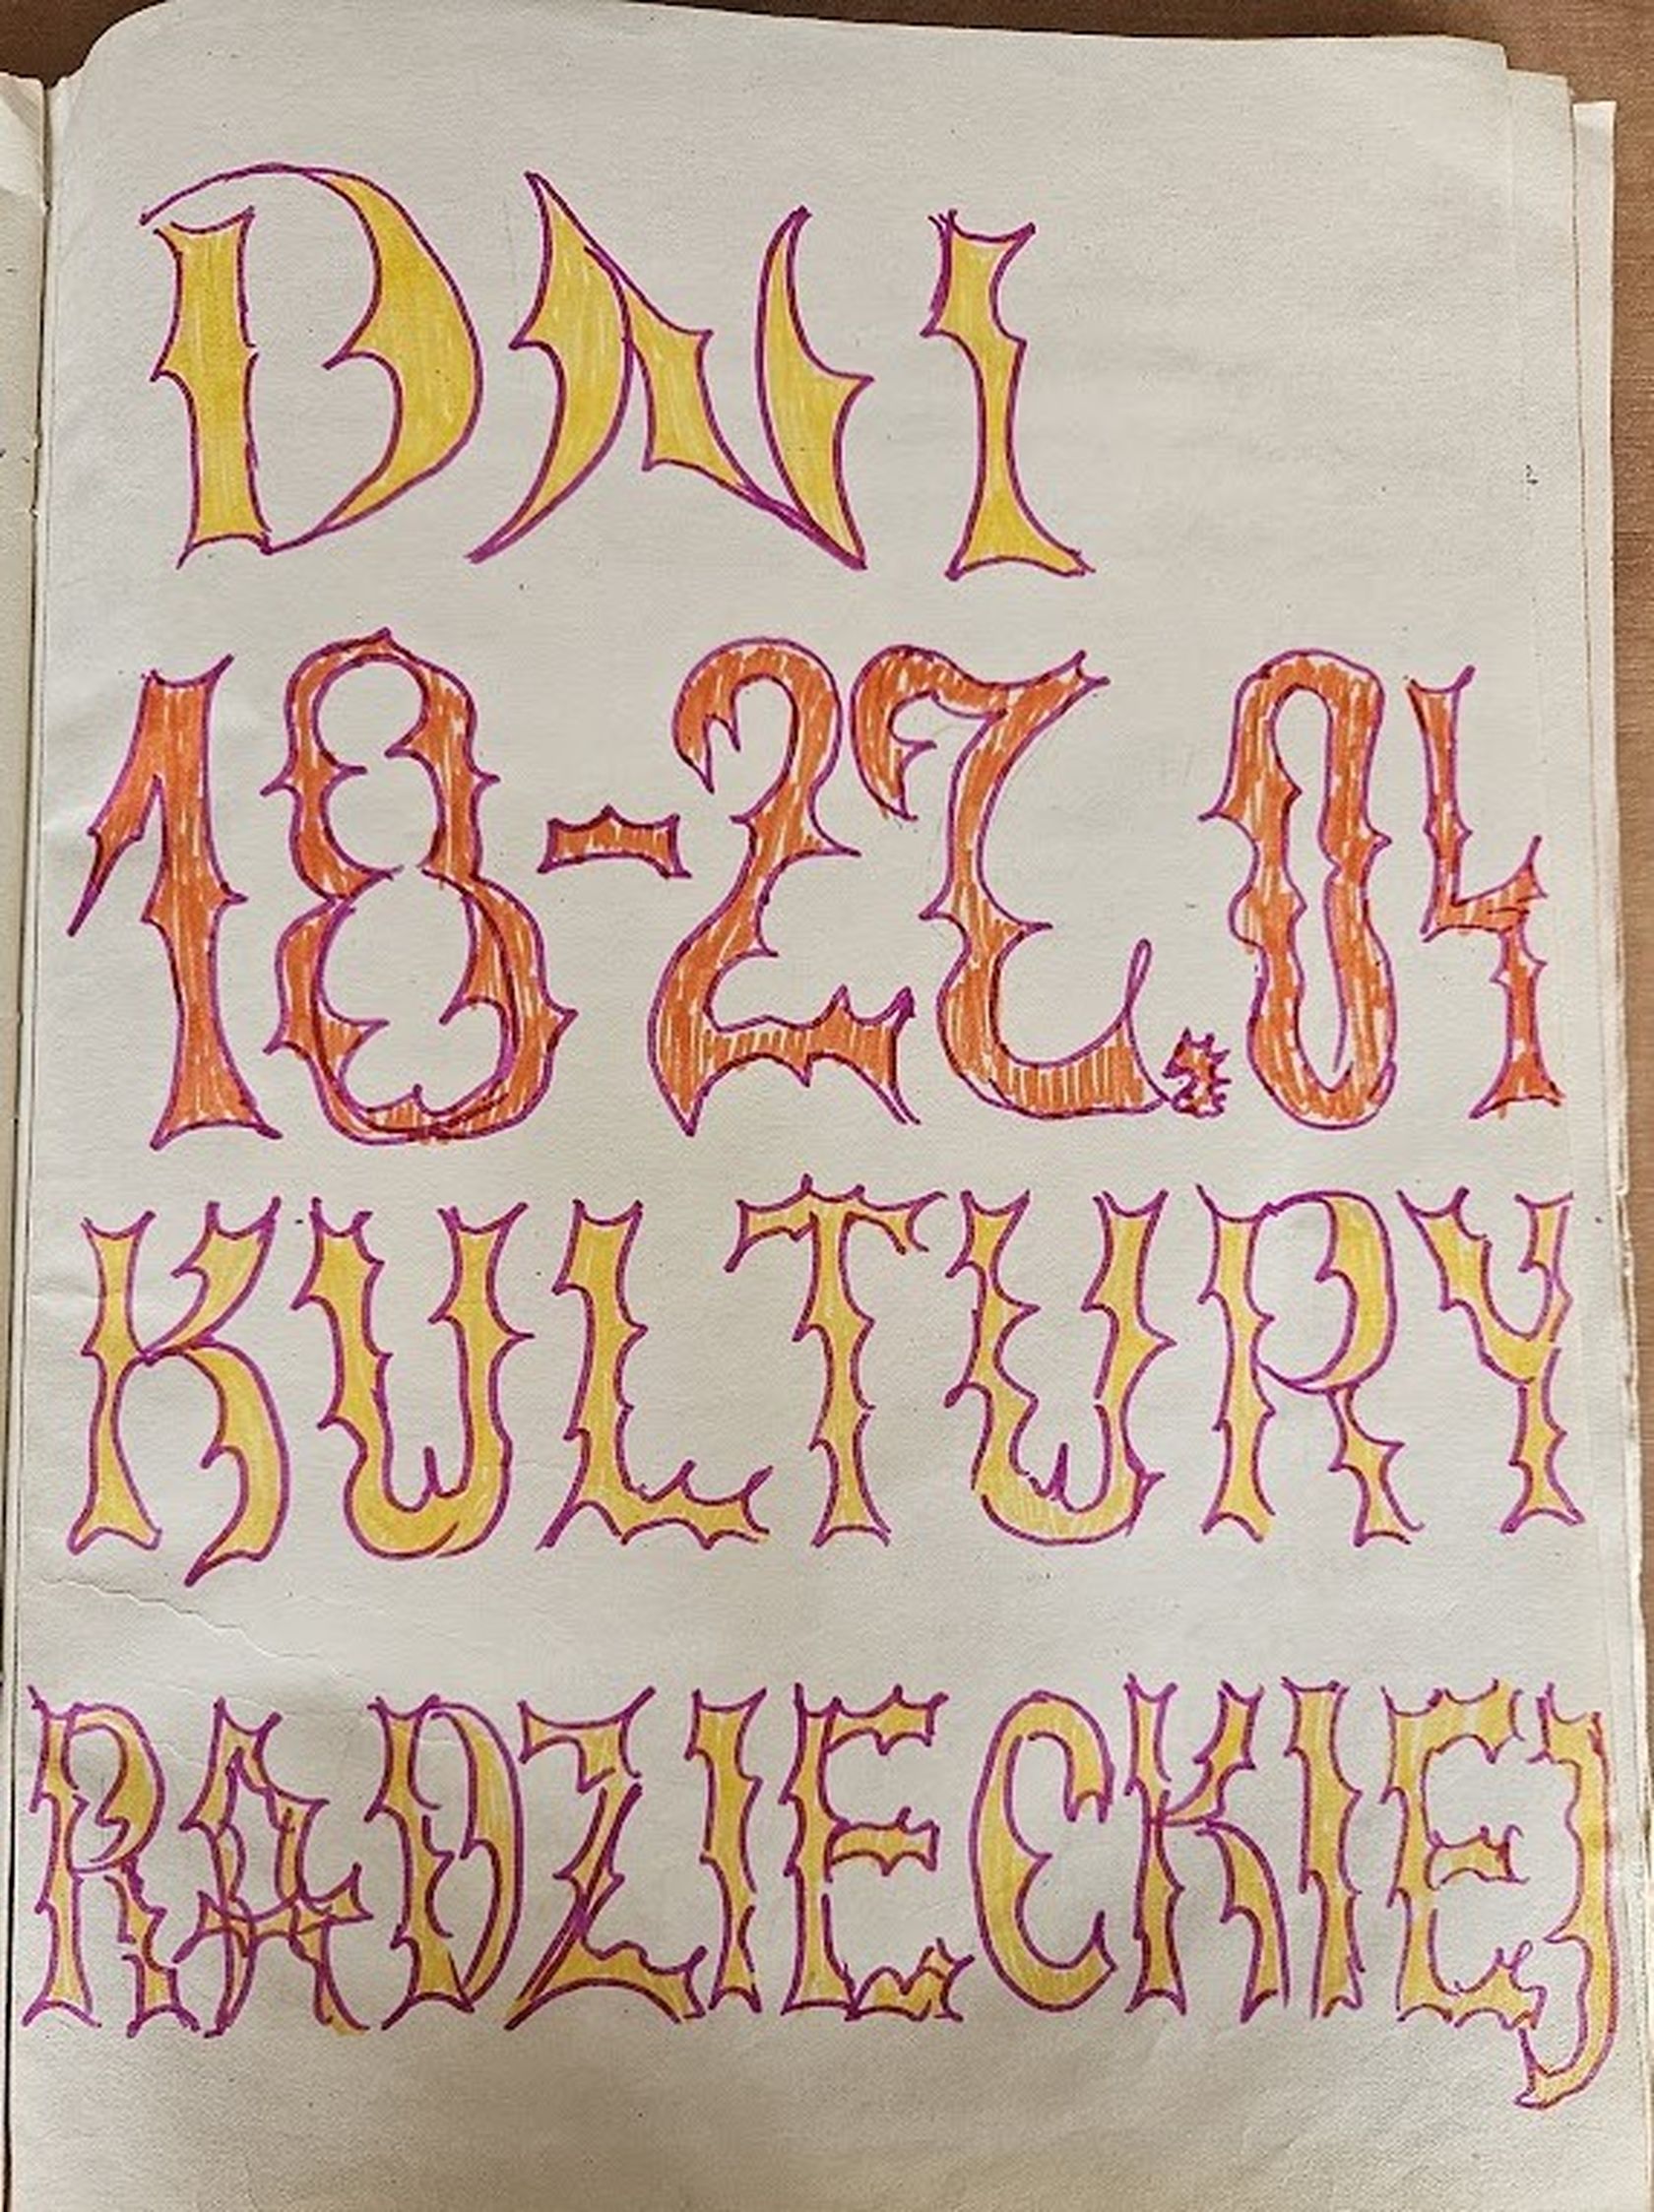 DNI
18-27.04
KULTURY
RADZIECKIEJ